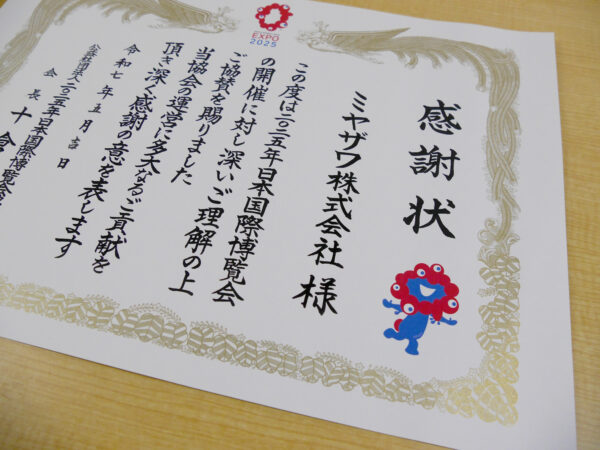 EXPO
2025
感謝状
ミヤザワ株式会社 様
この度は二〇二五年日本国際博覧会
の開催に対し深いご理解の上
ご協賛を賜りました
当協会の運営に多大なるご貢献を
頂き深く感謝の意を表します
令和七年五月吉日
公益社団法人二〇二五年日本国際博覧会
会長 十倉